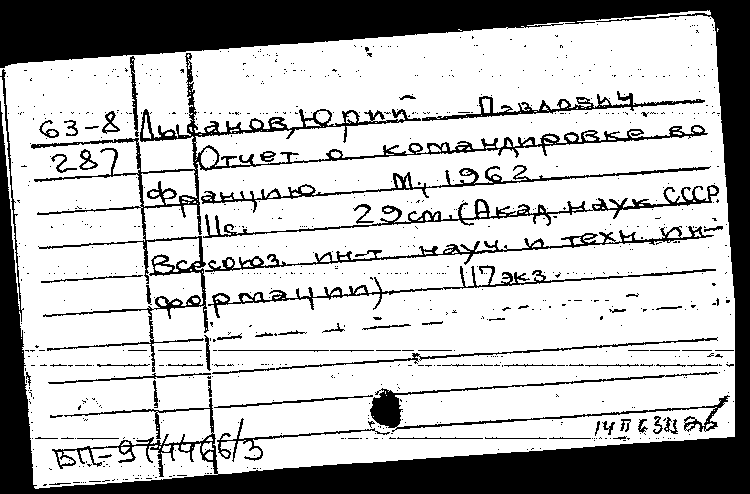 63-8 Лысанов, Юрий Павлович
287 Отчет о командировке во
Францию. М., 1962.
11с. 29см. (Акад. наук СССР
Всесоюз. ин-т науч. и техн. ин-
формации). 117 экз.
БП-974466/3